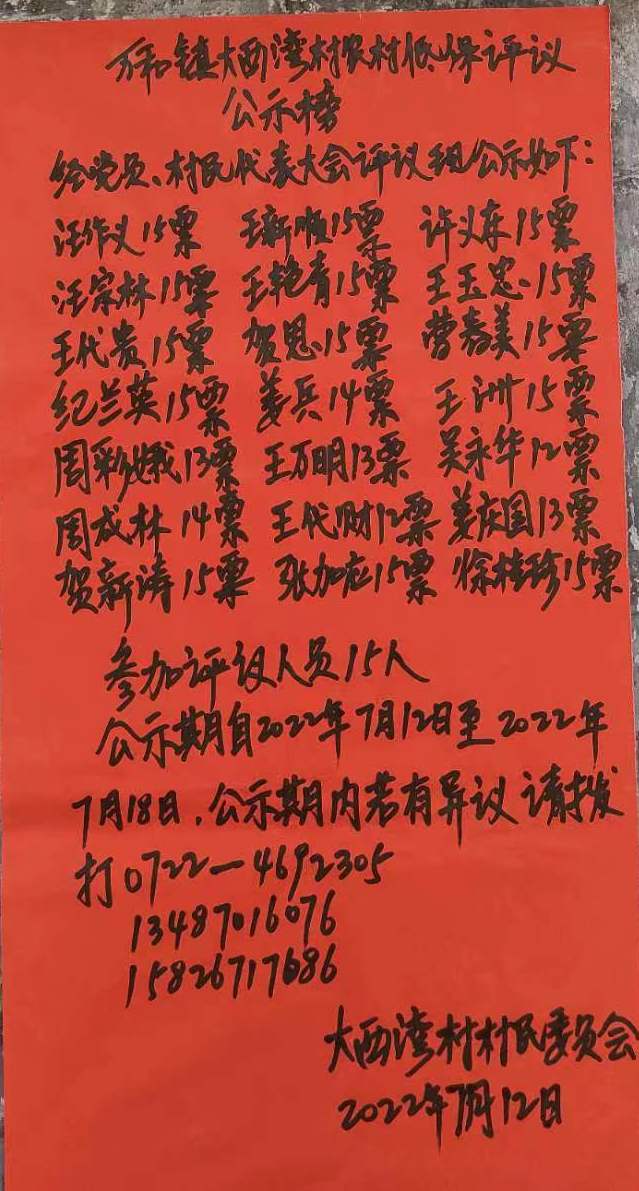 万和镇大西湾村农村低保评议
公示榜
经党员、村民代表大会评议现公示如下:
汪作义15票 王新顺15票 许义东15票
汪宗林15票 王艳青15票 王玉忠15票
王代贵15票 贺恩15票 曹春美15票
纪兰英15票 姜兵14票 王洲15票
周彩娥13票 王万明13票 吴永华12票
周成林14票 王代财12票 姜庆国13票
贺新涛15票 张加应15票 徐桂珍15票
参加评议人员15人
公示期自2022年7月12日至2022年
7月18日,公示期内若有异议请拨
打0722—4692305
13487016076
15826717686
大西湾村村民委员会
2022年7月12日